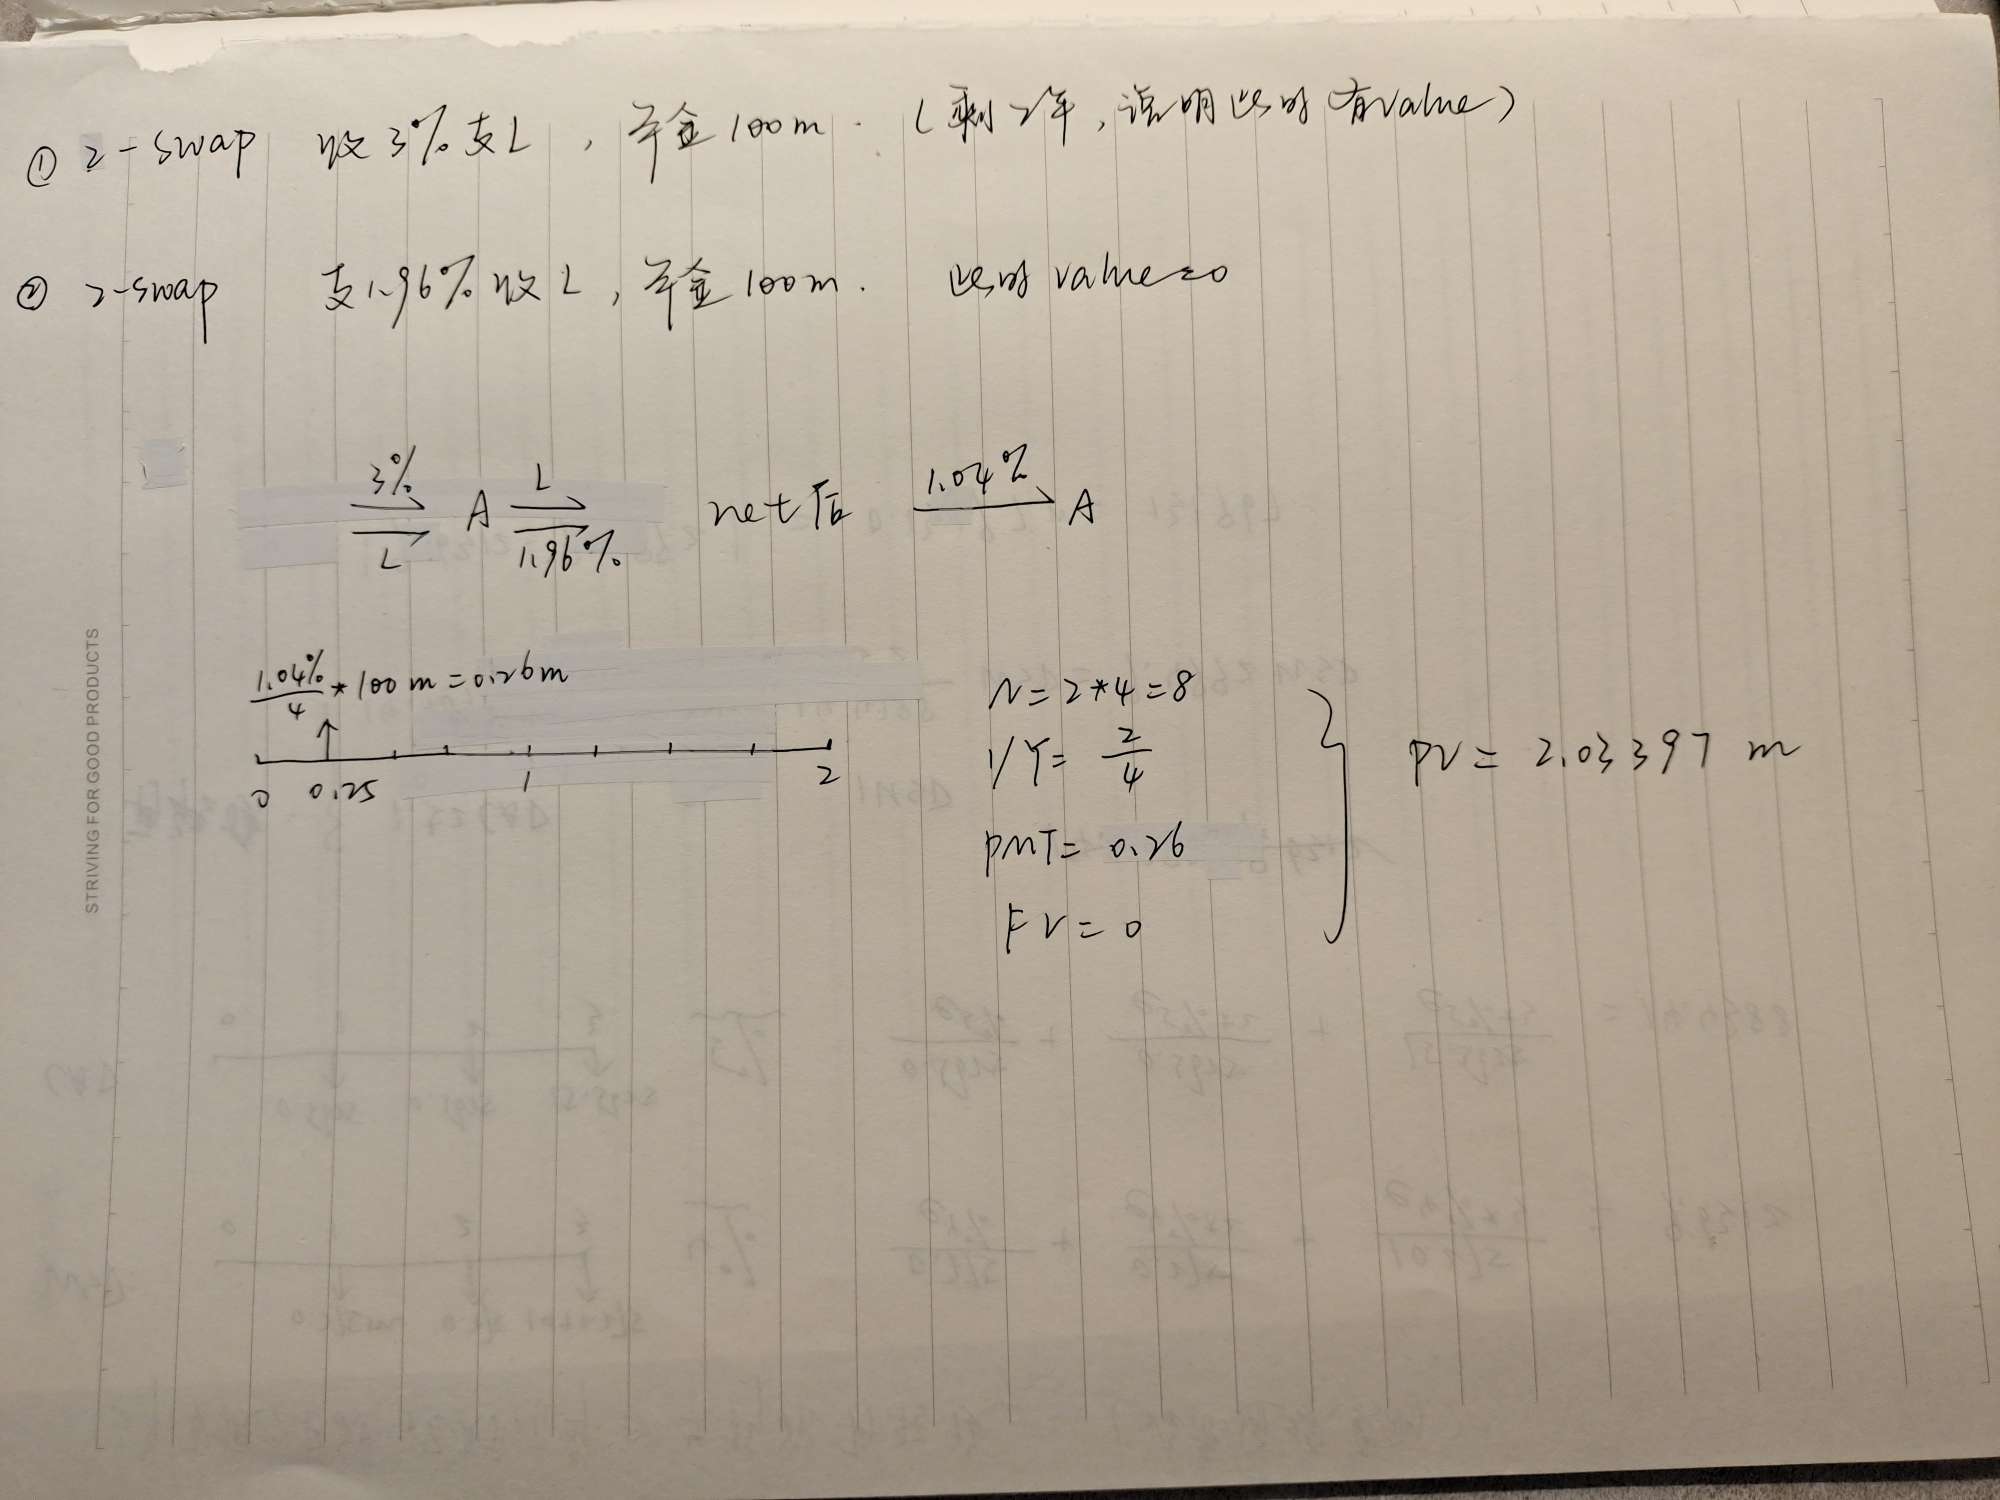 ① 2-swap 收3%支L, 本金100m. (剩2年,说明此时有value)
② 2-swap 支1.96%收L, 本金100m. 此时value=0
3% L
A net后 1.04% A
L 1.96%
1.04%/4 * 100m = 0.26m
0 0.25 1 2
N = 2*4 = 8
I/Y = 2/4
PMT = 0.26
FV = 0
PV = 2.03397 m
STRIVING FOR GOOD PRODUCTS